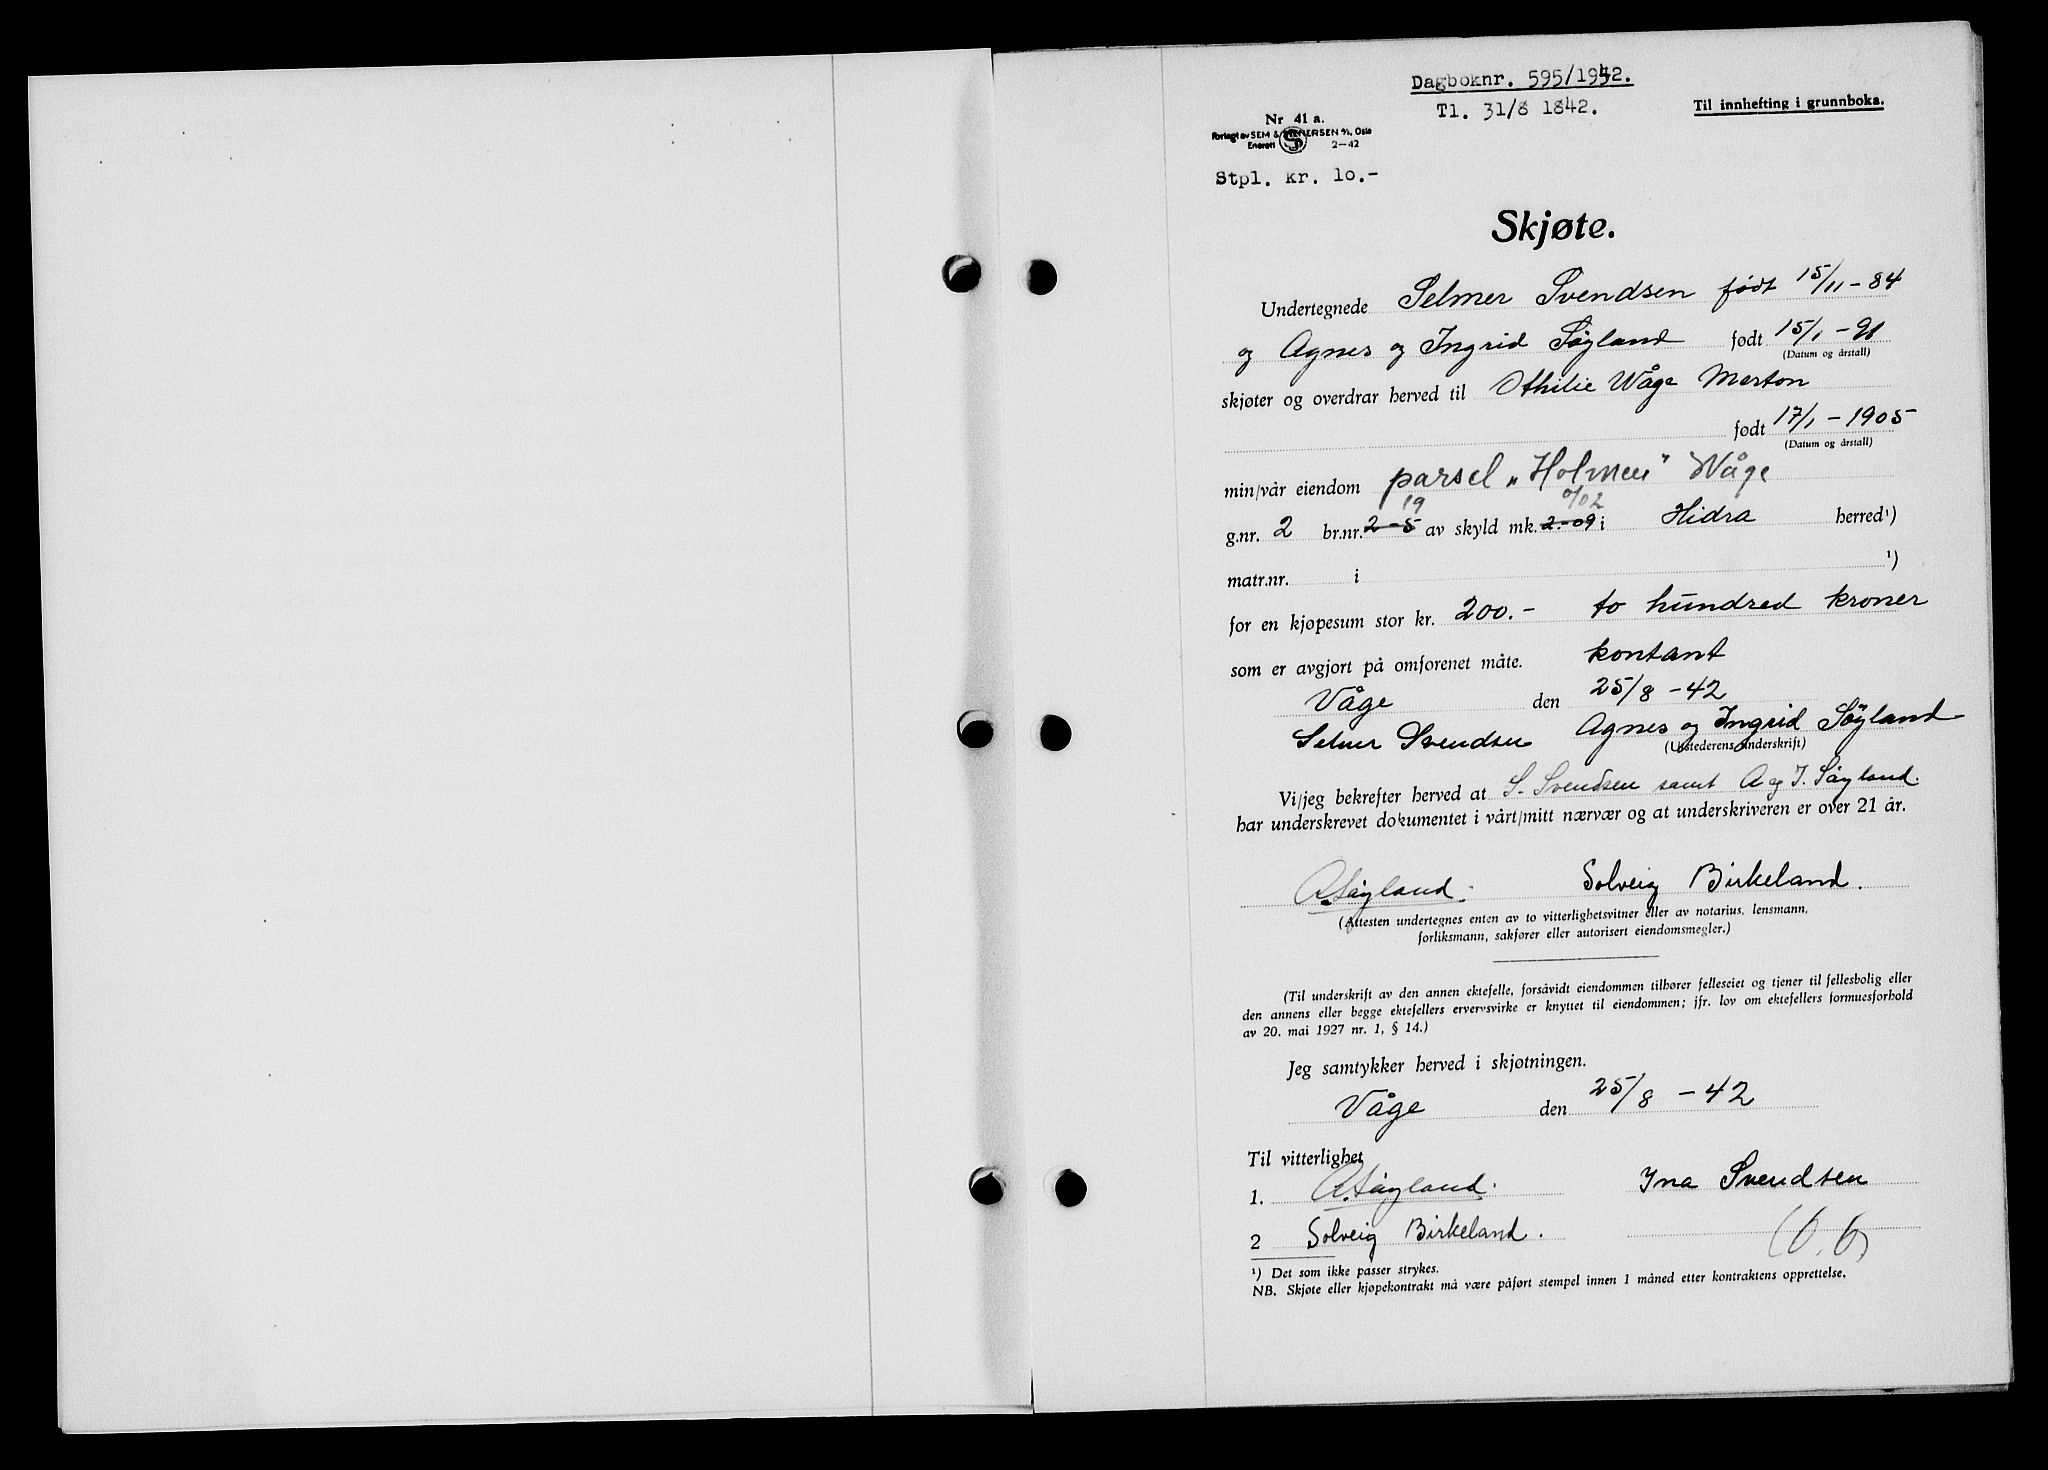 Dagboknr. 595/1942.
Tl. 31/8 1842.
Til innhefting i grunnboka.
Nr 41 a.
Forlagt av SEM & STENERSEN A/S, Oslo
Enerett 2—42
Stpl. kr. 10.-
Skjøte.
Undertegnede Selmer Svendsen født 15/11-84
og Agnes og Ingrid Søyland født 15/1-91
(Datum og årstall)
skjøter og overdrar herved til Othilie Våge Merton
født 17/1-1905
(Datum og årstall)
min/vår eiendom parsel "Holmen" Våge
19 0/02
g.nr. 2 br.nr. 2-5 av skyld mk. 2.-09 i Hidra herred¹)
matr.nr. i ¹)
for en kjøpesum stor kr. 200.- to hundred kroner
som er avgjort på omforenet måte. kontant
Våge den 25/8-42
Selmer Svendsen Agnes og Ingrid Søyland
(Utstederens underskrift)
Vi/jeg bekrefter herved at S. Svendsen samt A og I. Søyland.
har underskrevet dokumentet i vårt/mitt nærvær og at underskriveren er over 21 år.
A. Søyland. Solveig Birkeland.
(Attesten undertegnes enten av to vitterlighetsvitner eller av notarius, lensmann,
forliksmann, sakfører eller autorisert eiendomsmegler.)
(Til underskrift av den annen ektefelle, forsåvidt eiendommen tilhører felleseiet og tjener til fellesbolig eller
den annens eller begge ektefellers ervervsvirke er knyttet til eiendommen; jfr. lov om ektefellers formuesforhold
av 20. mai 1927 nr. 1, § 14.)
Jeg samtykker herved i skjøtningen.
Våge den 25/8-42
Til vitterlighet
1. A. Søyland. Ina Svendsen
2 Solveig Birkeland.
¹) Det som ikke passer strykes.
NB. Skjøte eller kjøpekontrakt må være påført stempel innen 1 måned etter kontraktens opprettelse.